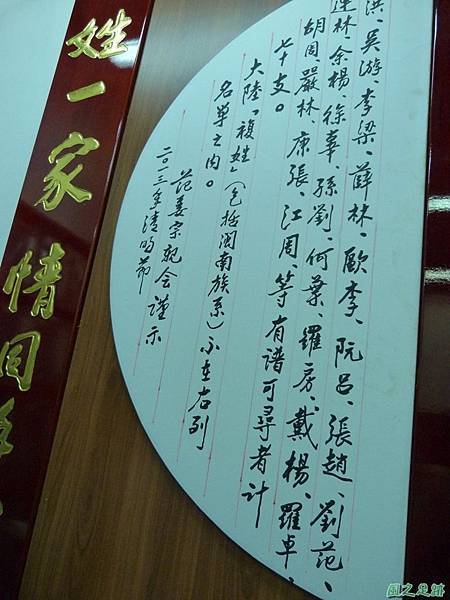 洪、吳游、李梁、薛林、歐李、阮呂、張趙、劉范、
林余楊、徐辜、孫劉、何葉、羅房、戴楊、羅卓、
胡周、嚴林、康張、江周、等有譜可尋者計
七十支。
大陸「複姓」(包括閩南族系)不在右列
名單之內。
范姜宗親會謹示
二〇一三年清明節
姓一家情同